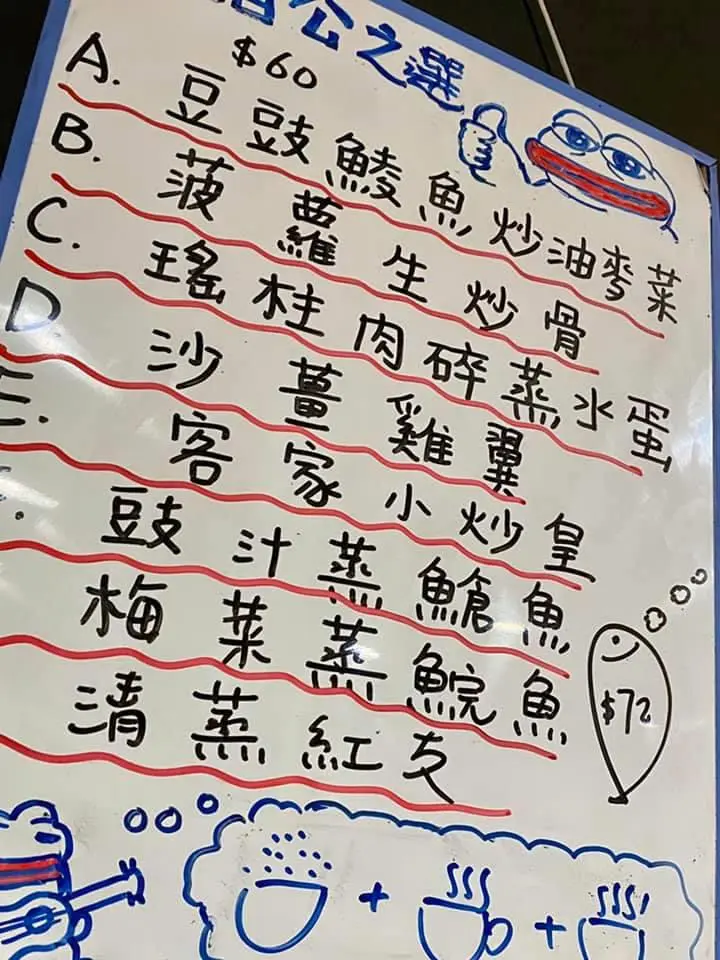 公之選
$60
A. 豆豉鯪魚炒油麥菜
B. 菠蘿生炒骨
C. 瑤柱肉碎蒸水蛋
D. 沙薑雞翼
E. 客家小炒皇
豉汁蒸鯧魚
梅菜蒸鯇魚
清蒸紅友
$72
+ +